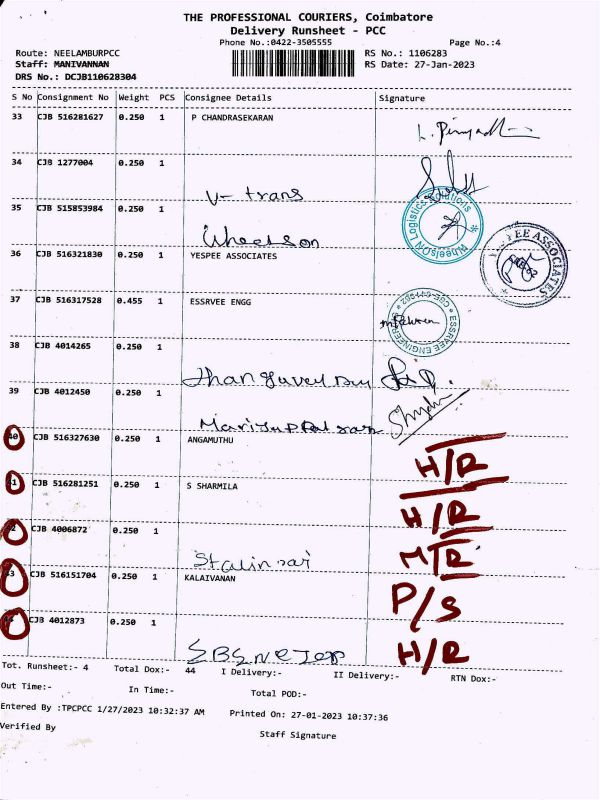 THE PROFESSIONAL COURIERS, Coimbatore
Delivery Runsheet - PCC
Phone No.:0422-3505555 Page No.:4
Route: NEELAMBURPCC RS No.: 1106283
Staff: MANIVANNAN RS Date: 27-Jan-2023
DRS No.: DCJB110628304
S No Consignment No Weight PCS Consignee Details Signature
33 CJB 516281627 0.250 1 P CHANDRASEKARAN
34 CJB 1277004 0.250 1
V- trans
35 CJB 515853984 0.250 1
WheelsON Logistics Solutions
Wheelson
36 CJB 516321830 0.250 1 YESPEE ASSOCIATES
37 CJB 516317528 0.455 1 ESSRVEE ENGG
38 CJB 4014265 0.250 1
39 CJB 4012450 0.250 1
40 CJB 516327630 0.250 1 ANGAMUTHU
H/R
41 CJB 516281251 0.250 1 S SHARMILA
H/R
42 CJB 4006872 0.250 1
M/R
43 CJB 516151704 0.250 1 KALAIVANAN
P/S
44 CJB 4012873 0.250 1
H/R
Tot. Runsheet:- 4 Total Dox:- 44 I Delivery:- II Delivery:- RTN Dox:-
Out Time:- In Time:- Total POD:-
Entered By :TPCPCC 1/27/2023 10:32:37 AM Printed On: 27-01-2023 10:37:36
Verified By
Staff Signature